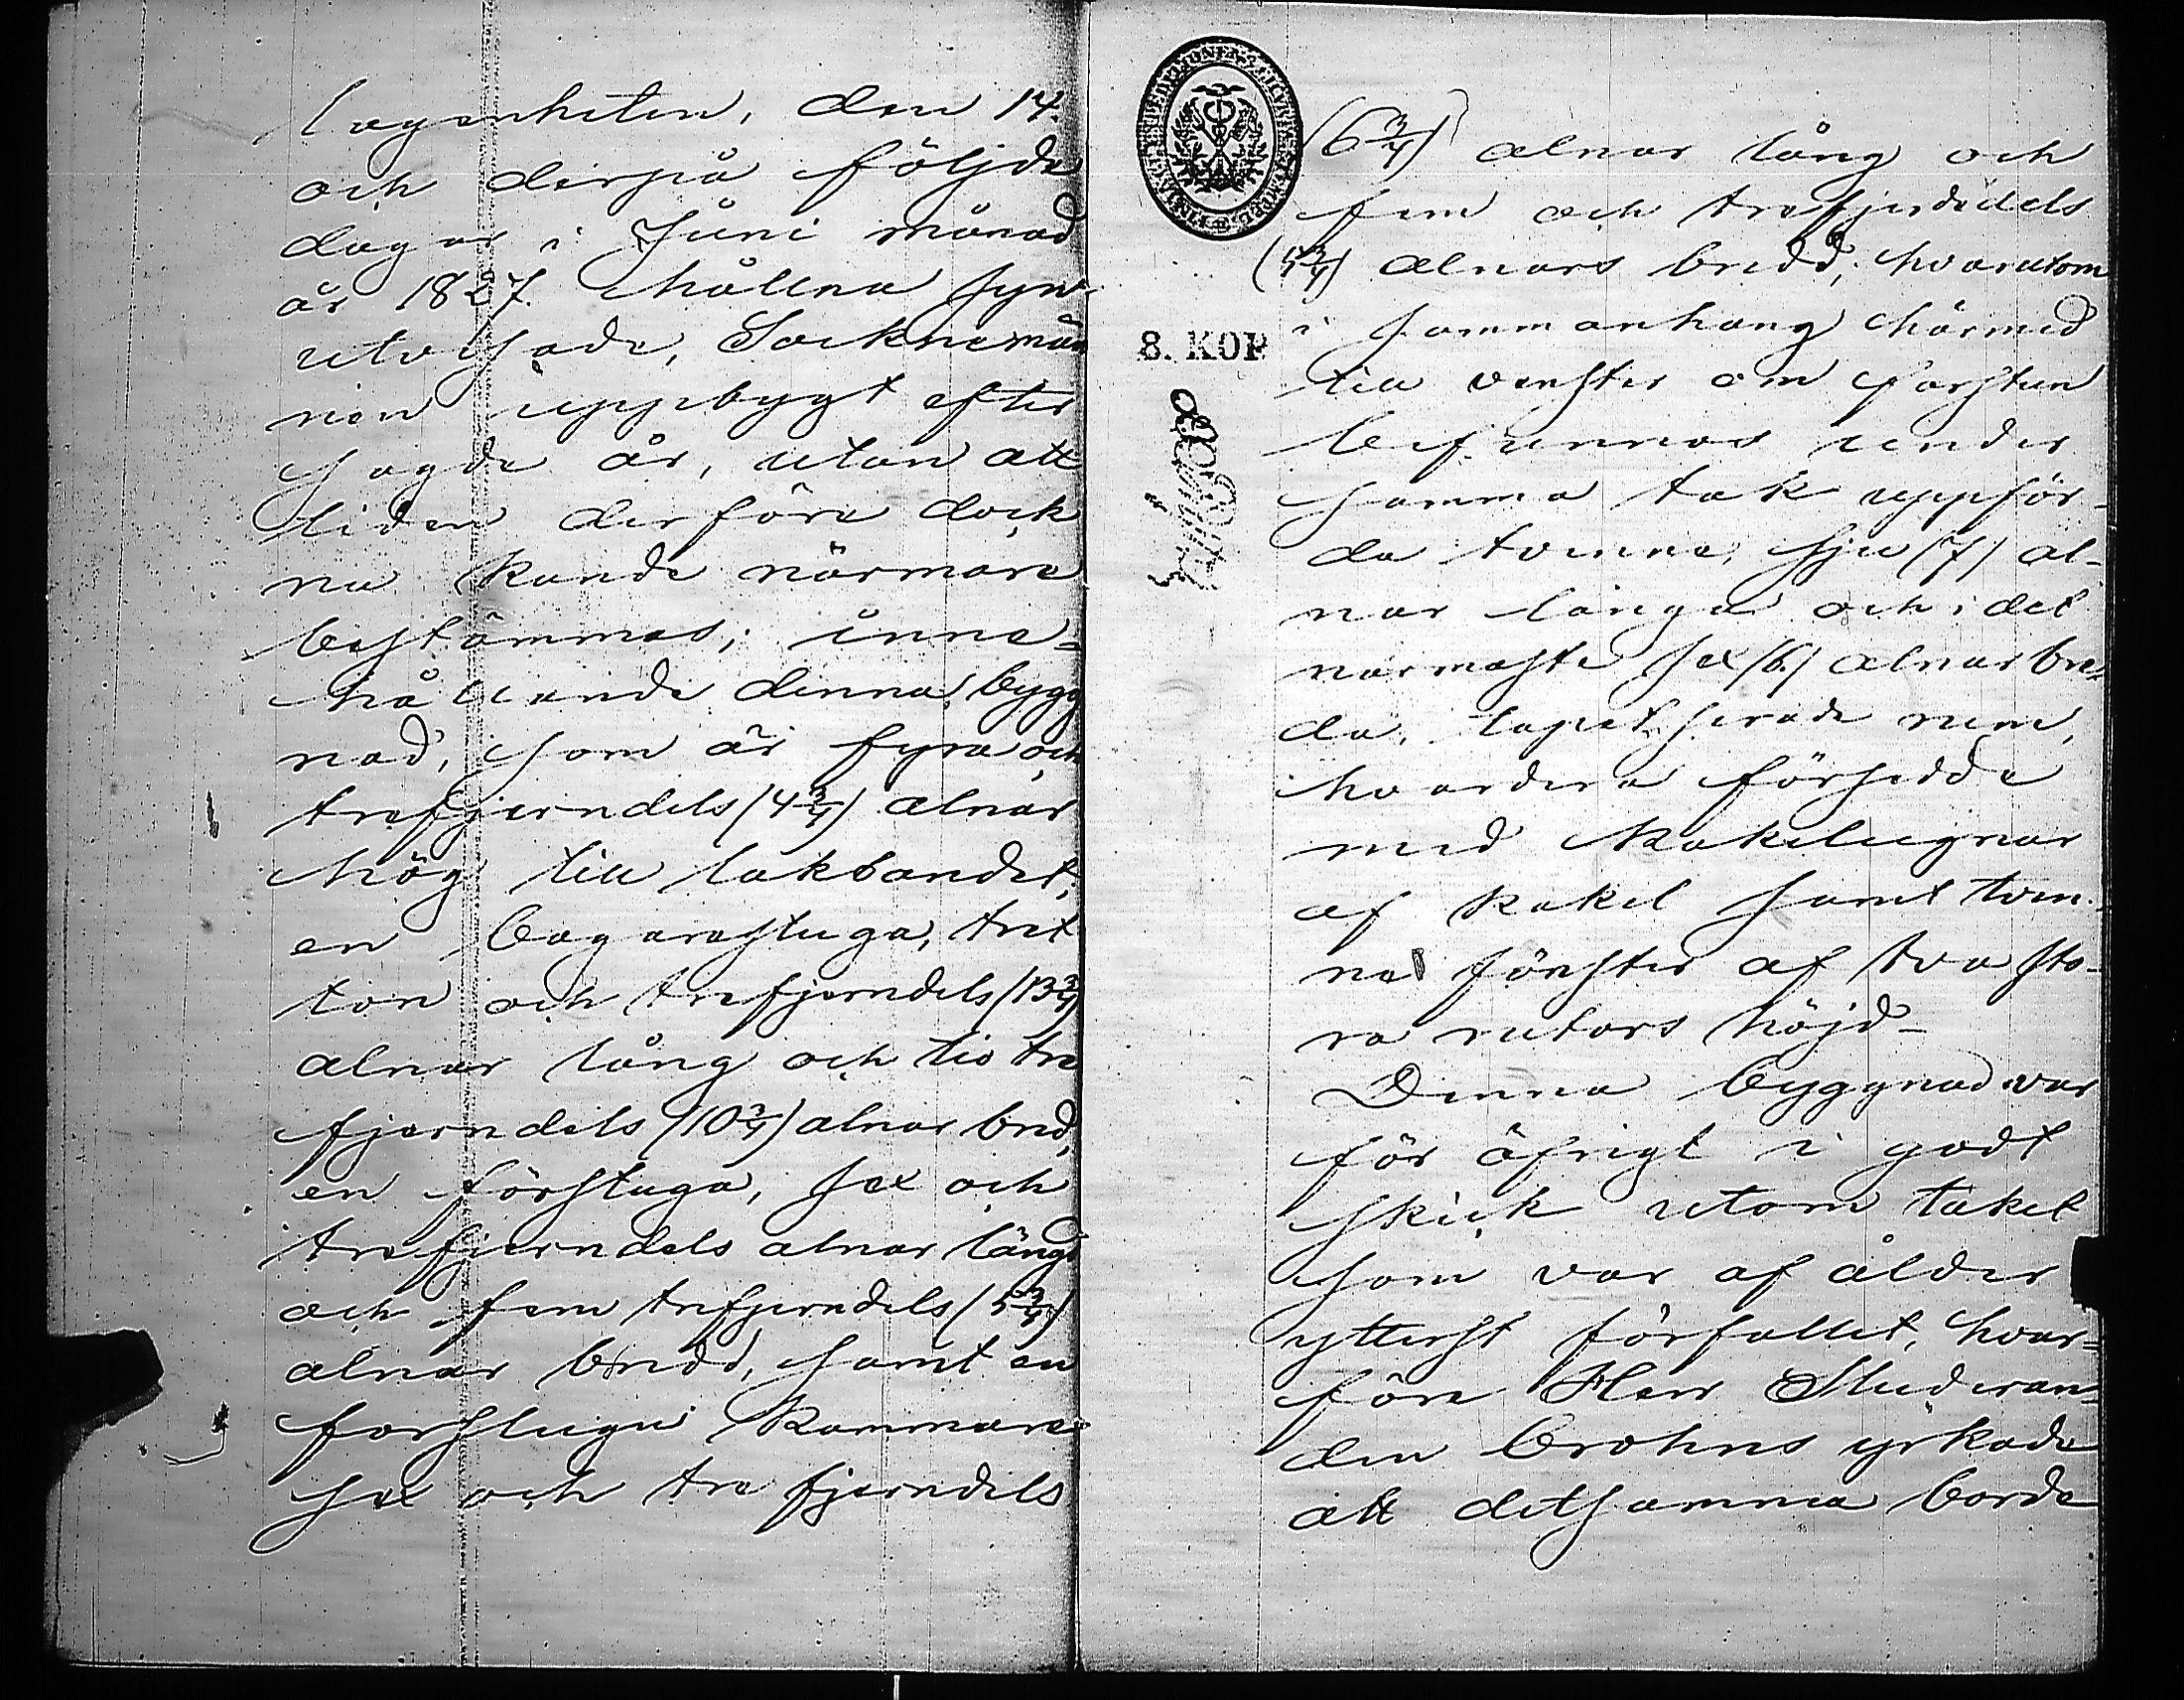 lägenheten, den 14.
och derpå följde
dagar i Juni månad
år 1827. hållna syn
utvisade, Socknemän
nen uppbygt efter
sagde år, utan att
tiden derföre dock
nu kunde närmare
bestämmas; inne-
hållande denna bygg
nad, som är fyra och
trefjerndels (4 3/4) alnar
hög till takbandet,
en bagarestuga, tret
ton och trefjerndels (13 3/4)
alnar lång och tio tre
fjerndels (10 3/4) alnar bred,
en förstuga, sex och
trefjerndels alnar längd
och fem trefjerndels (5 3/4)
alnar bredd, samt en
förstugu kammare
sex och tre fjerndels
(6 3/4) alnar lång och
fem och trefjerdedels
(5 3/4) alnars bredd; hvarutom
8. KOP
i sammanhang härmed
till venster om förstun
befunnos under
samma tak uppför-
da tvenne, sju (7) al-
nar långa och i det
närmaste sex (6) alnar bre-
da, tapetserade rum,
hvardera försedde
med kakelugnar
af kakel samt tven-
ne fönster af två sto-
ra rutors höjd-
Denna byggnad var
för öfrigt i godt
skick utom taket
som var af ålder
ytterst förfallet, hvar-
före Herr Studeran-
den Brohns yrkade
att detsamma borde